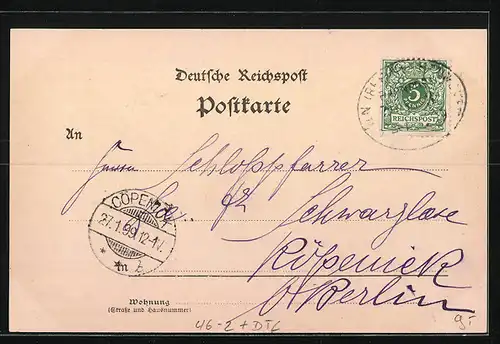 Deutsche Reichspost
Postkarte
5
REICHSPOST
An
Herrn Schloßpfarrer
Schwarzlose
COPENICK
27.1.99.12-1N.
Köpenick
b/Berlin
Wohnung
(Straße und Hausnummer)
46-2 + DTC